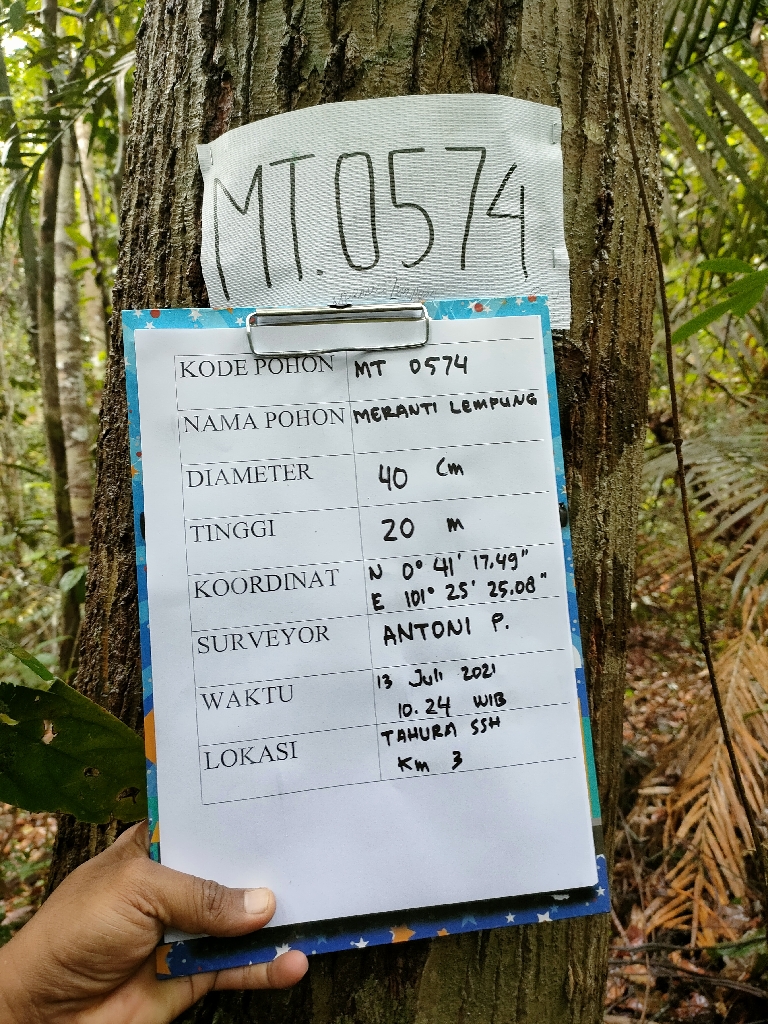 MT.0574
KODE POHON MT 0574
NAMA POHON MERANTI LEMPUNG
DIAMETER 40 Cm
TINGGI 20 m
KOORDINAT N 0° 41' 17.49"
E 101° 25' 25.08"
SURVEYOR ANTONI P.
WAKTU 13 Juli 2021
10.24 WIB
LOKASI TAHURA SSH
Km 3